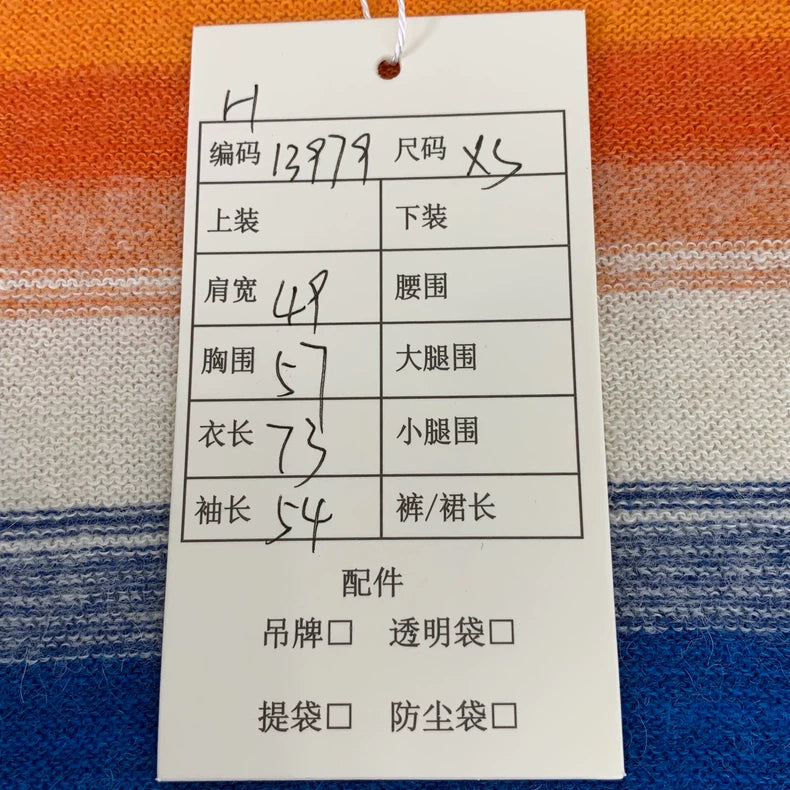 H
编码 13979 尺码 XS
上装 下装
肩宽 49 腰围
胸围 57 大腿围
衣长 73 小腿围
袖长 54 裤/裙长
配件
吊牌□ 透明袋□
提袋□ 防尘袋□